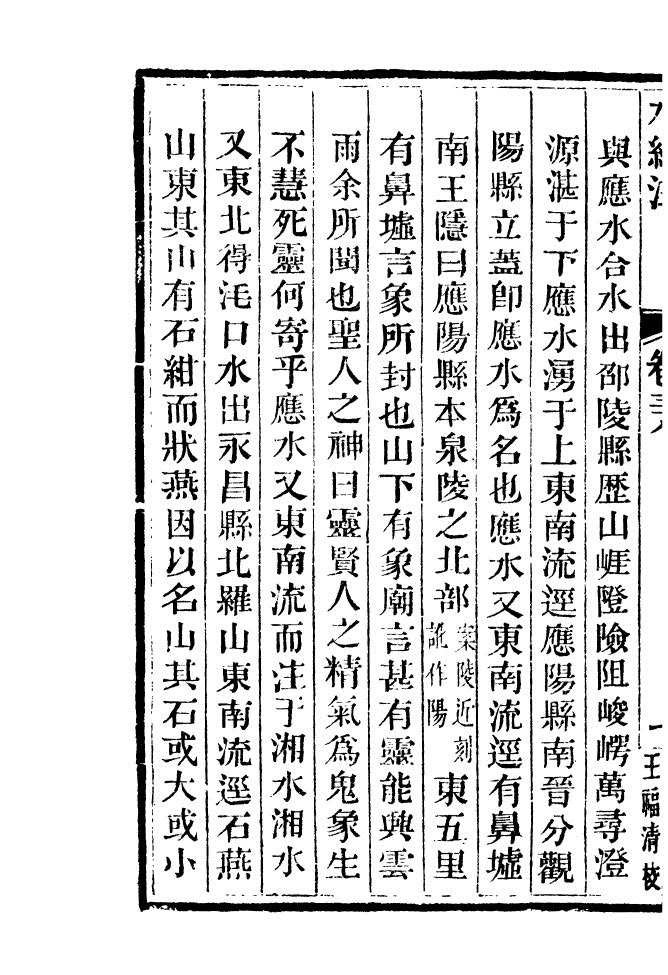 水經注 卷三八 王福清校
與應水合水出邵陵縣歷山崕隥險阻峻崿萬尋澄
源湛于下應水湧于上東南流逕應陽縣南晉分觀
陽縣立蓋卽應水爲名也應水又東南流逕有鼻墟
南王隱曰應陽縣本泉陵之北部案陵近刻訛作陽東五里
有鼻墟言象所封也山下有象廟言甚有靈能興雲
雨余所聞也聖人之神曰靈賢人之精氣爲鬼象生
不慧死靈何寄乎應水又東南流而注于湘水湘水
又東北得洭口水出永昌縣北羅山東南流逕石燕
山東其山有石紺而狀燕因以名山其石或大或小